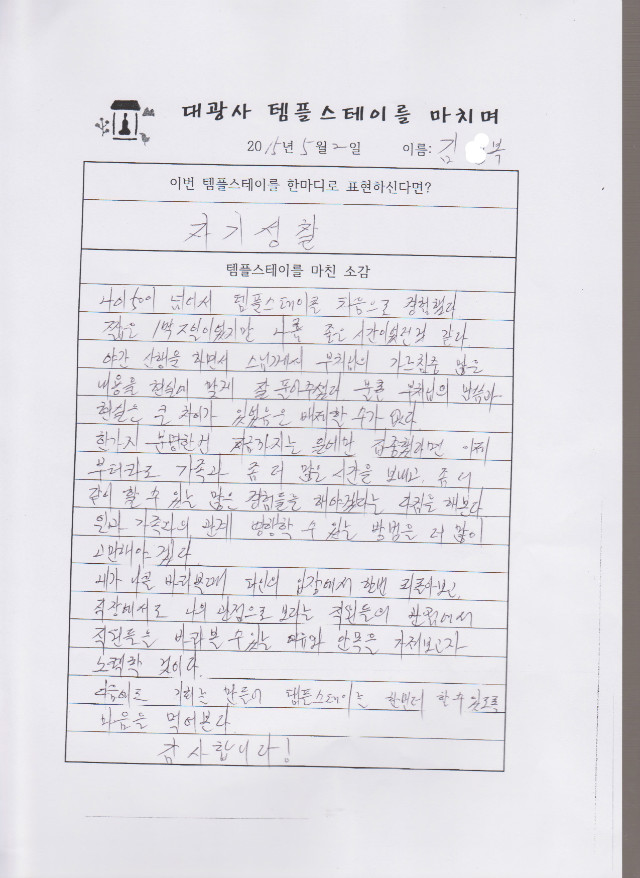 대광사 템플스테이를 마치며
2015년 5월 2일 이름: 김 복
이번 템플스테이를 한마디로 표현하신다면?
자기성찰
템플스테이를 마친 소감
나이 50이 넘어서 템플스테이를 처음으로 경험했다
짧은 1박2일이었지만 나름 좋은 시간이었던것 같다
야간 산행을 하면서 스님께서 부처님의 가르침중 많은
내용을 현실에 맞게 잘 풀어주셨다 물론 부처님의 말씀과
현실은 큰 차이가 있었음은 배제할 수가 없다
한가지 분명한건 지금까지는 일에만 집중했다면 이제
부터라도 가족과 좀 더 많은 시간을 보내고, 좀 더
같이 할 수 있는 많은 경험들을 해야겠다는 다짐을 해본다
일과 가족과의 관계 병행할 수 있는 방법을 더 많이
고민해야 겠다.
내가 나를 바라볼때 타인의 입장에서 한번 되돌아보고,
직장에서도 나의 관점으로 보다는 직원들의 관점에서
직원들을 바라볼 수 있는 여유와 안목을 가져보고자
노력할 것이다.
기회는 만들어 템플스테이는 한번더 할 수 있도록
마음을 먹어본다
감사합니다!